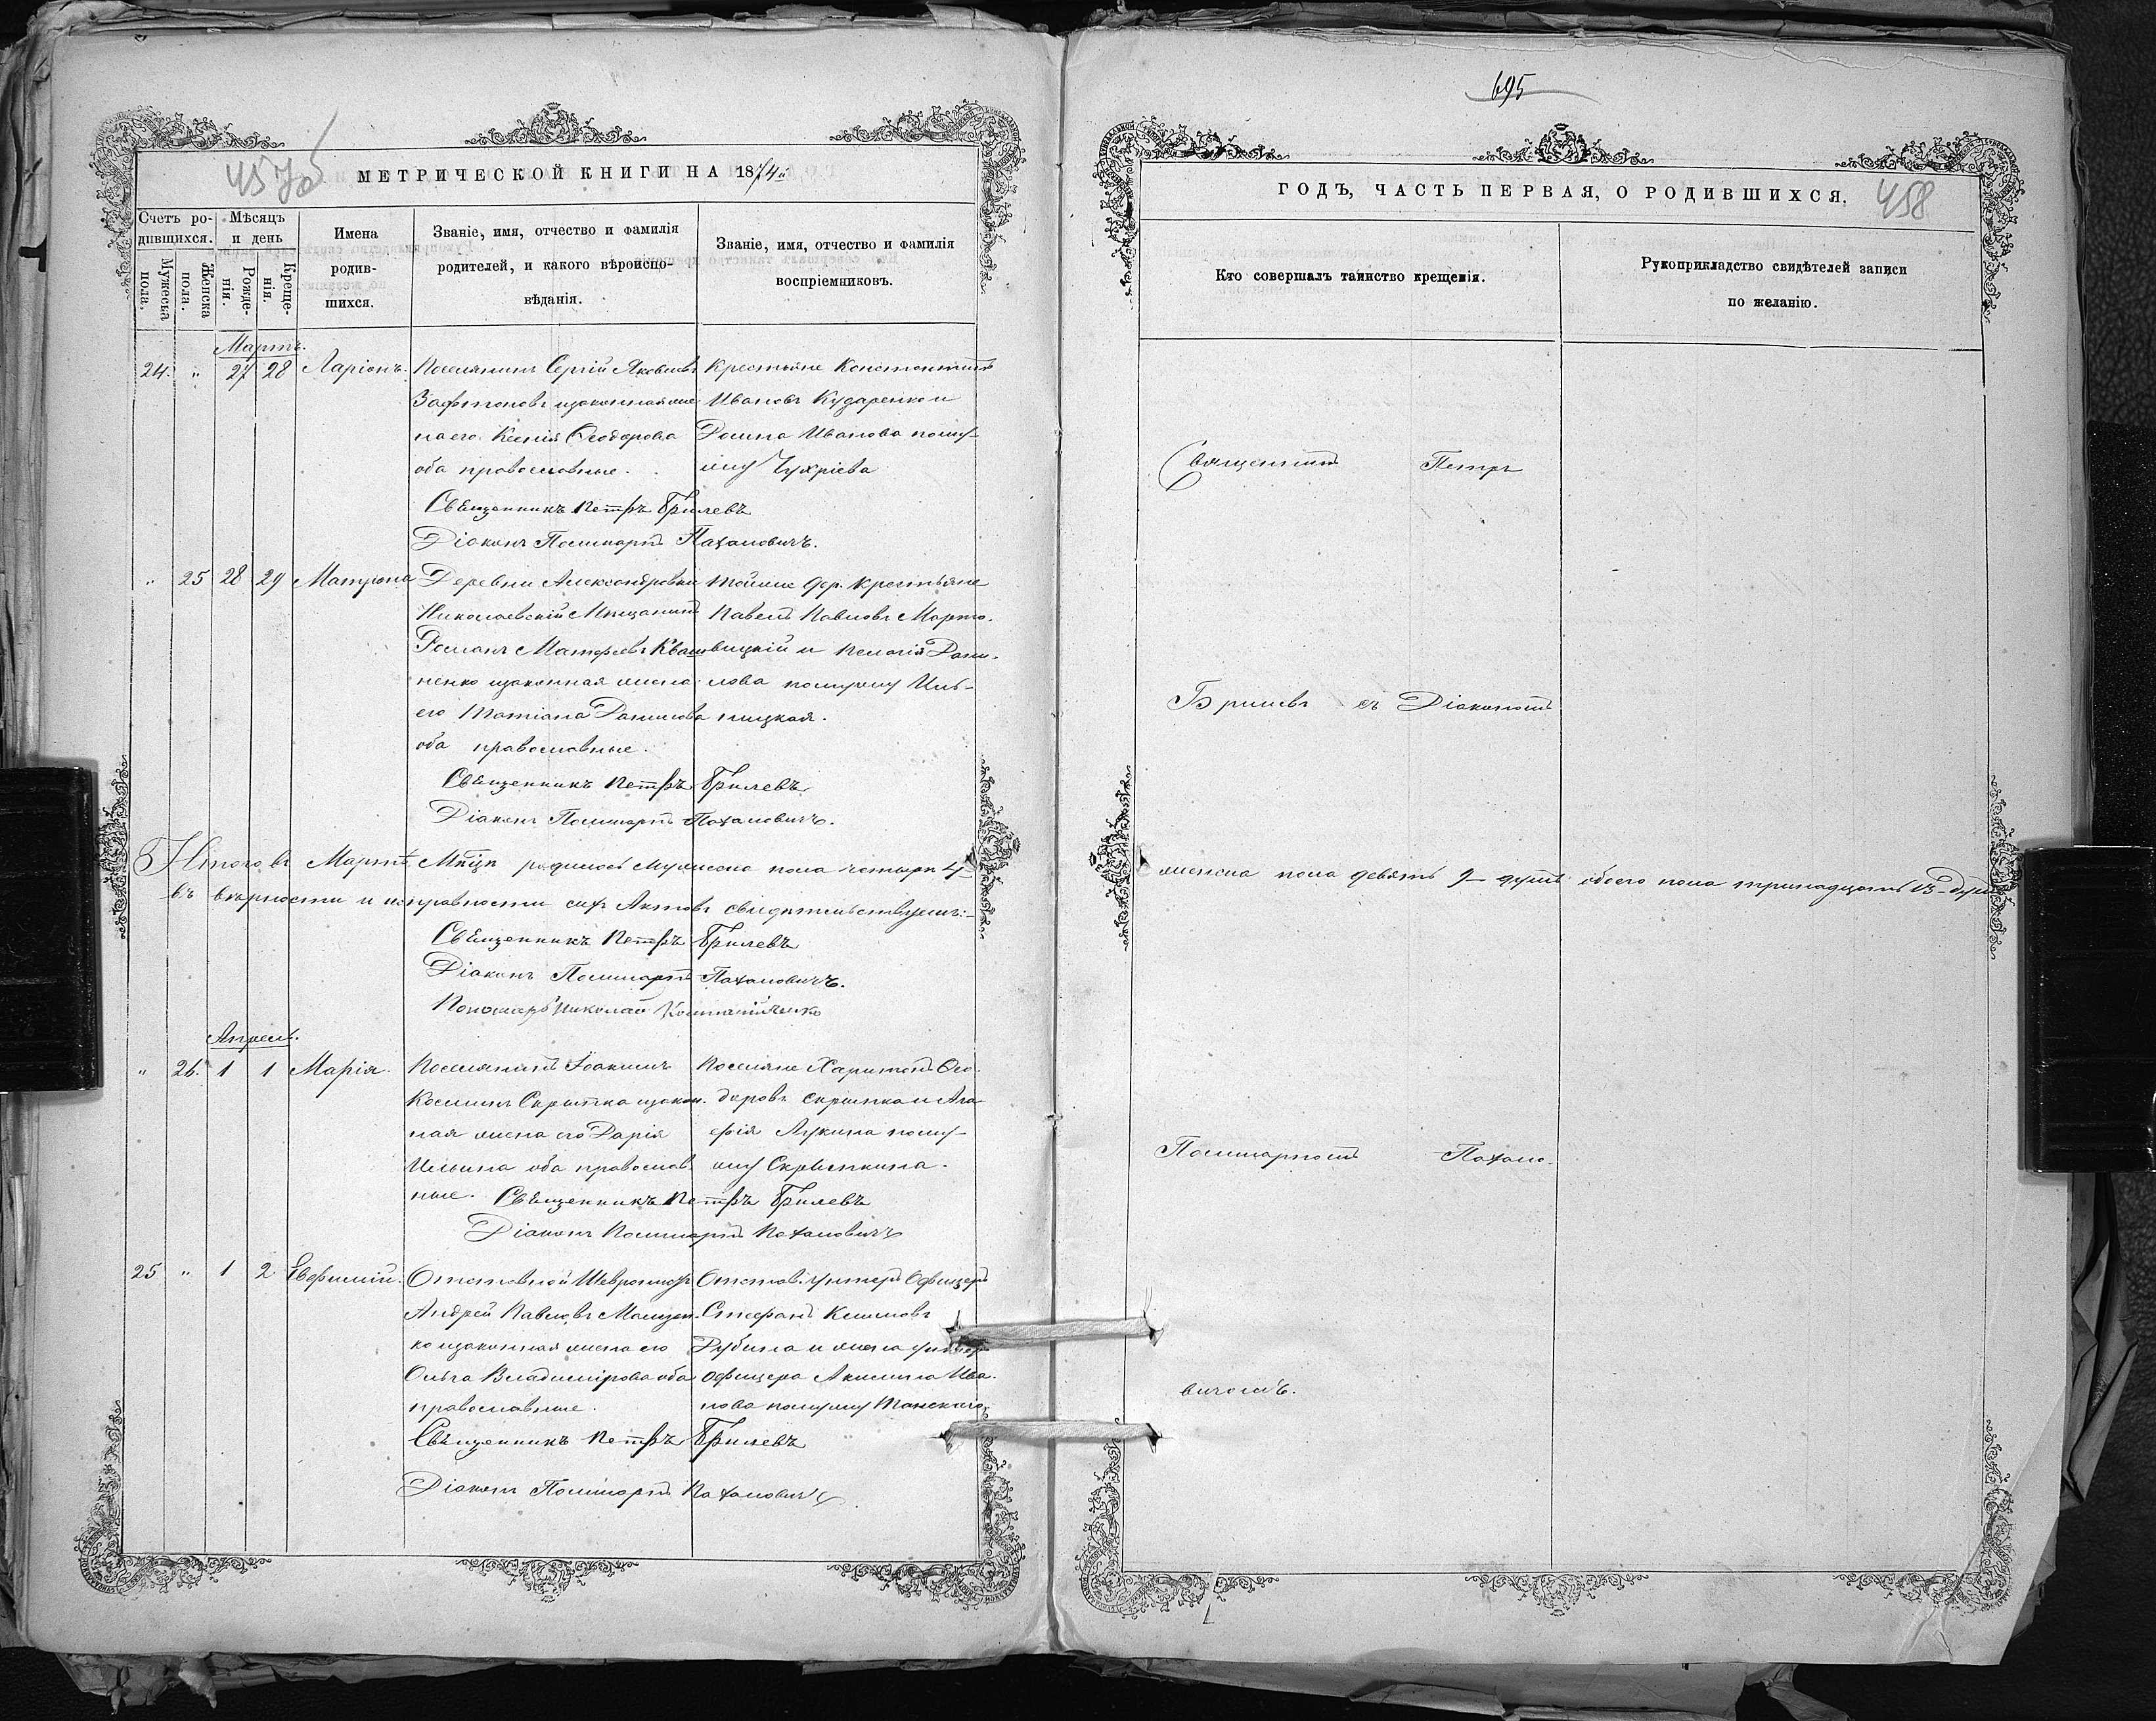 457об
МЕТРИЧЕСКОЙ КНИГИ НА 1874й
Счетъ родившихся.
Мужеска пола.
Женска пола.
Мѣсяцъ и день
Рожденія.
Крещенія.
Имена родившихся.
Званіе, имя, отчество и фамилія родителей, и какого вѣроисповѣданія.
Званіе, имя, отчество и фамилія воспріемниковъ.
Мартъ.
24. " 27 28 Ларіонъ. Поселянинъ Сергій Яковлевъ Крестьяне Константинъ
изаконная же Ивановъ Кударенко и
на его Ксенія Ѳеодорова Домна Иванова по му-
оба православные. жу Чухріева
Священникъ Петръ Брилевъ
Діаконъ Поликарпъ Пахаловичъ.
" 25 28 29 Матрона Деревни Александровки тойже дер. крестьяне
Николаевскій Мѣщанинъ Павелъ Павловъ
Романъ Матфеевъ и Пелагія Дани-
ненко изаконная жена лова помужу
его Татіана Данилова
оба православные.
Священникъ Петръ Брилевъ
Діаконъ Поликарпъ Пахаловичъ.
Итого въ Мартѣ Мѣсяцѣ родилось мужеска пола четыри 4
въ вѣрности и исправности сихъ Актовъ свидѣтельствуемъ:-
Священникъ Петръ Брилевъ
Діаконъ Поликарпъ Пахаловичъ.
Пономарь Николай
Апрель.
" 26. 1 1 Марія. Поселянинъ Іоакимъ Поселяне Харитонъ Ѳео-
Косминъ Скрыпка изакон. доровъ Скрыпка и Ага-
ная жена его Дарія фія Лукина по му-
Ильина оба православ- жу Скрыпкина.
ные. Священникъ Петръ Брилевъ
Діаконъ Поликарпъ Пахаловичъ
25 " 1 2 Евфимій. Отставной Отстав. унтеръ Офицеръ
Андрей Павловъ Стефанъ Климовъ
ко изаконная жена его Рубина и жена унтеръ
Ольга Владимірова оба офицера Акилина Ива-
православные. нова по мужу
Священникъ Петръ Брилевъ
Діаконъ Поликарпъ Пахаловичъ
695
ГОДЪ, ЧАСТЬ ПЕРВАЯ, О РОДИВШИХСЯ.
458
Кто совершалъ таинство крещенія.
Рукоприкладство свидѣтелей записи по желанію.
Священникъ Петръ
Брилевъ съ Діакономъ
женска пола девять 9 душъ обоего пола тринадцать 13 душъ
Поликарпомъ Пахало-
вичомъ.